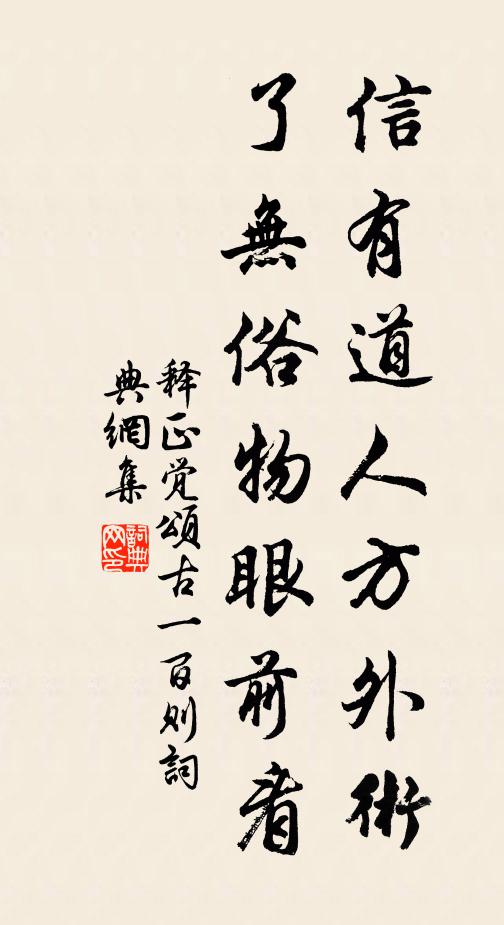 信有道人方外術
了無俗物眼前看
释正觉頌古一百则詞
典網集
詞典网印